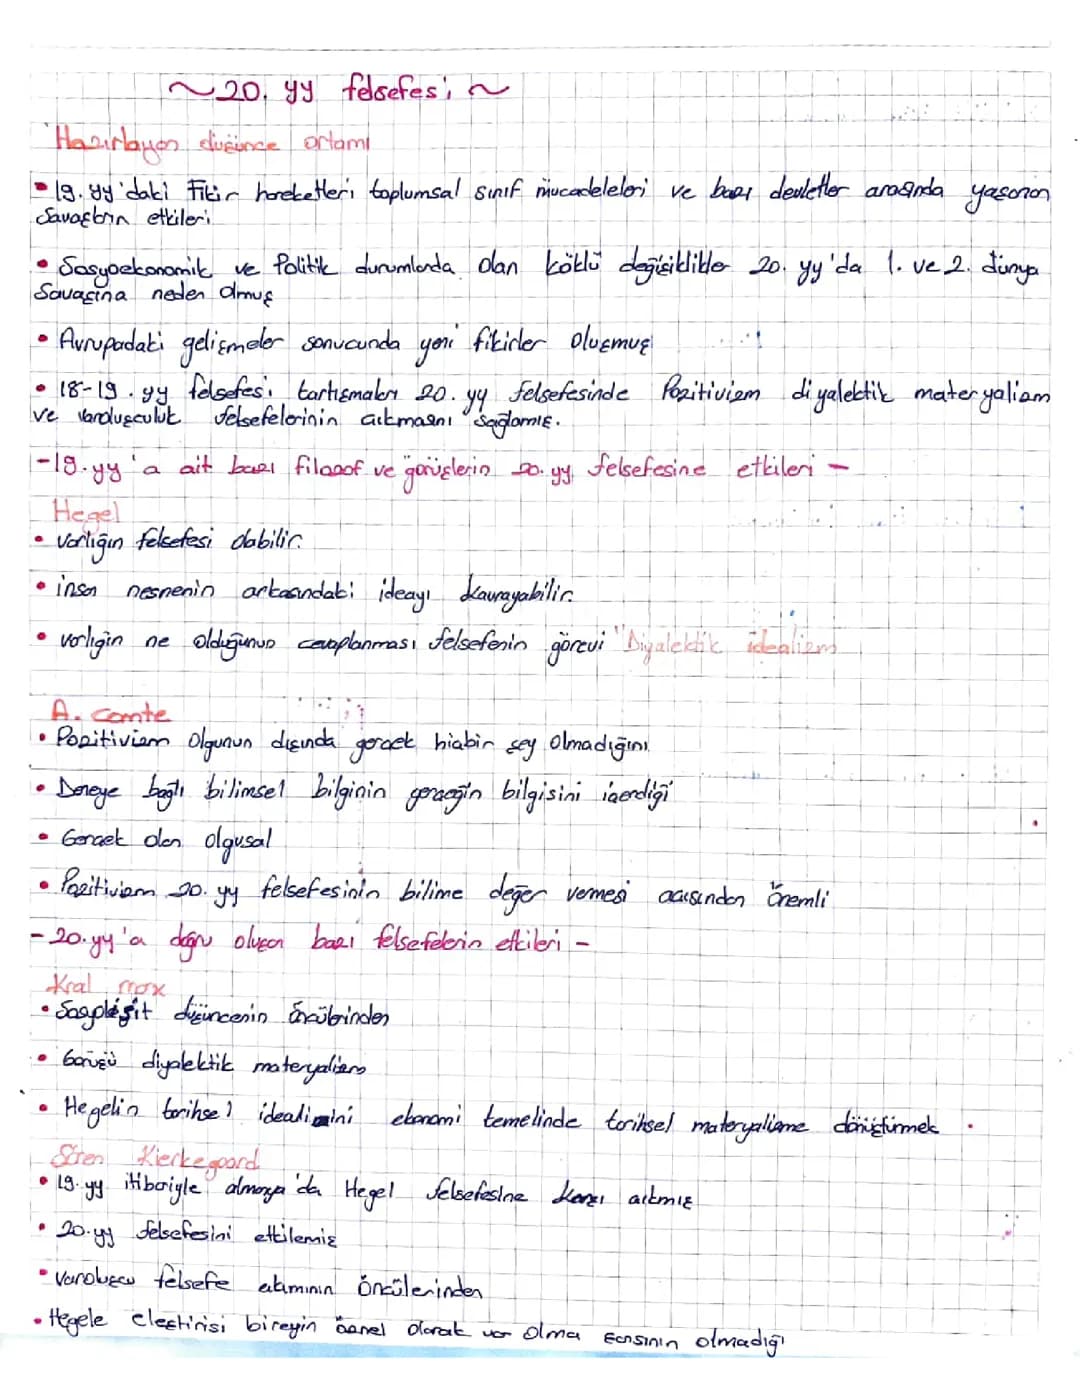 ~20. yy felsefesi~
Hazırlayan düşünce ortamı
• 19. yy'daki Fikir hareketleri toplumsal sınıf mücadeleleri ve bazı devletler arasında yaşanan
Savaşların etkileri
• Sosyoekonomik ve Politik durumlarda olan köklü değişiklikler 20. yy'da 1. ve 2. dünya
Savaşına neden olmuş
• Avrupadaki gelişmeler sonucunda yeni fikirler oluşmuş
• 18-19. yy felsefesi tartışmaları 20. yy felsefesinde Pozitivizm diyalektik materyalizm
ve varoluşculuk felsefelerinin çıkmasını sağlamış.
-19. yy'a ait bazı filozof ve görüşlerin 20. yy felsefesine etkileri -
Hegel
• Varlığın felsefesi olabilir.
• insan nesnenin arkasındaki ideayı kavrayabilir.
• varlığın ne olduğunun cevaplanması felsefenin görevi "Diyalektik idealizm
A. comte
• Pozitivizm Olgunun dışında gerçek hiçbir şey olmadığını
• Deneye bağlı bilimsel bilginin gerçeğin bilgisini içerdiği
• Gerçek olan olgusal
• Pozitivizm 20. yy felsefesinin bilime değer vermesi açısından önemli
- 20. yy'a doğru oluşan bazı felsefelerin etkileri -
Kral marx
• düşüncenin öncülerinden
• Görüşü diyalektik materyalizm
• Hegelin tarihsel idealizmini ekonomi temelinde tarihsel materyalizme dönüştürmek .
Sören Kierkegaard
• 19. yy itibariyle almanya'da Hegel felsefesine karşı çıkmış
• 20. yy felsefesini etkilemiş
• Varoluşcu felsefe akımının öncülerinden
• Hegele eleştirisi bireyin öznel olarak var olma şansının olmadığı